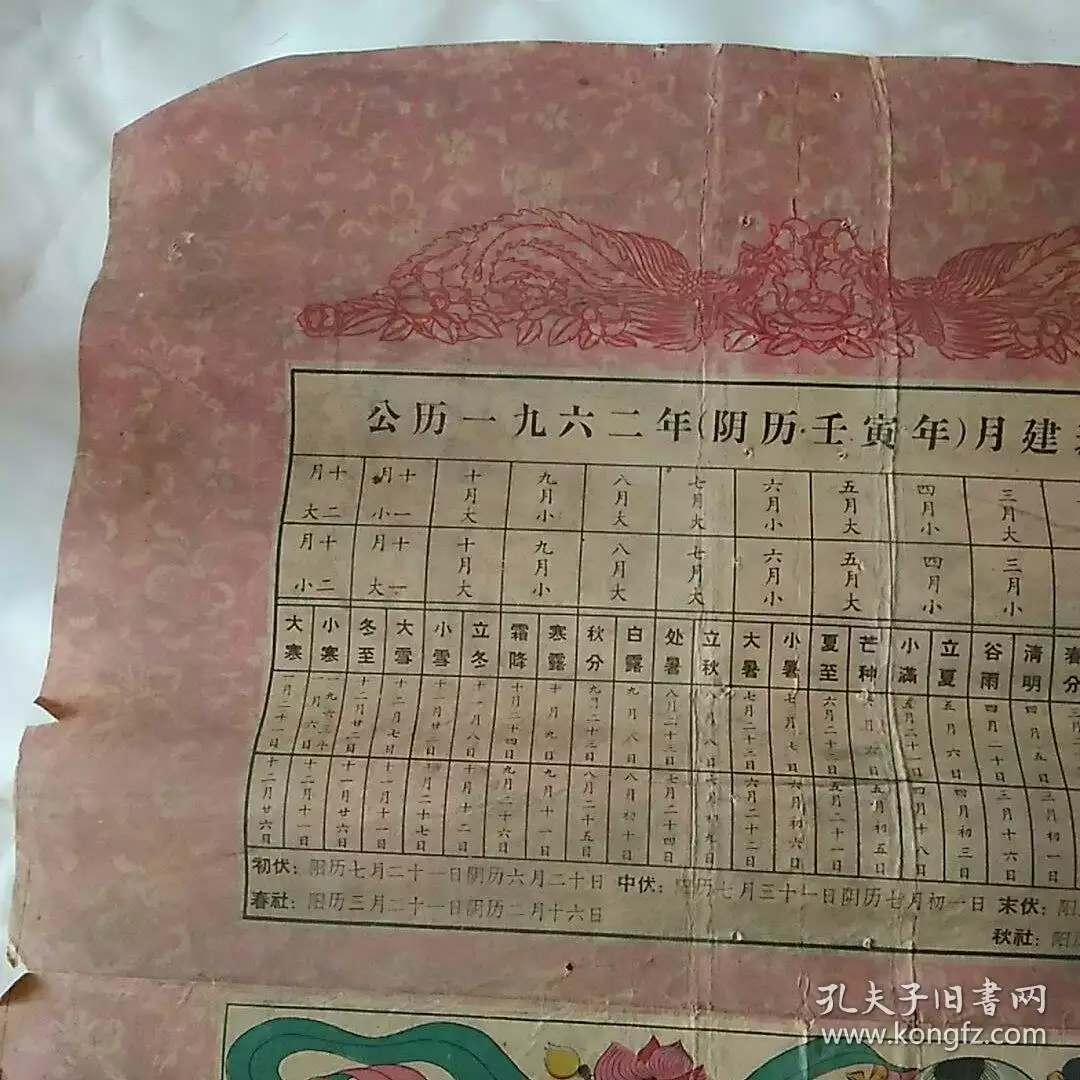 公历一九六二年(阴历·壬寅·年)月建
十二月大 十一月小 十月大 九月小 八月大 七月大 六月小 五月大 四月小 三月大
十二月小 十一月大 十月大 九月小 八月大 七月大 六月小 五月大 四月小 三月小
大寒 小寒 冬至 大雪 小雪 立冬 霜降 寒露 秋分 白露 处暑 立秋 大暑 小暑 夏至 芒种 小满 立夏 谷雨 清明 春分
一月二十一日 一九六三年一月六日 十二月廿二日 十二月七日 十一月廿三日 十一月八日 十月二十四日 十月九日 九月二十三日 九月八日 八月二十三日 八月八日 七月二十三日 七月七日 六月二十二日 六月六日 五月二十一日 五月六日 四月二十日 四月五日
十二月廿六日 十二月十一日 十一月廿六日 十一月十一日 十月二十七日 十月十二日 九月二十六日 九月十一日 八月二十五日 八月初十日 七月二十四日 七月初九日 六月二十二日 六月初六日 五月二十一日 五月初五日 四月十八日 四月初三日 三月十六日 三月初一日
初伏: 阳历七月二十一日阴历六月二十日 中伏: 阳历七月三十一日阴历七月初一日 末伏: 阳
春社: 阳历三月二十一日阴历二月十六日
秋社: 阳
孔夫子旧書网
www.kongfz.com